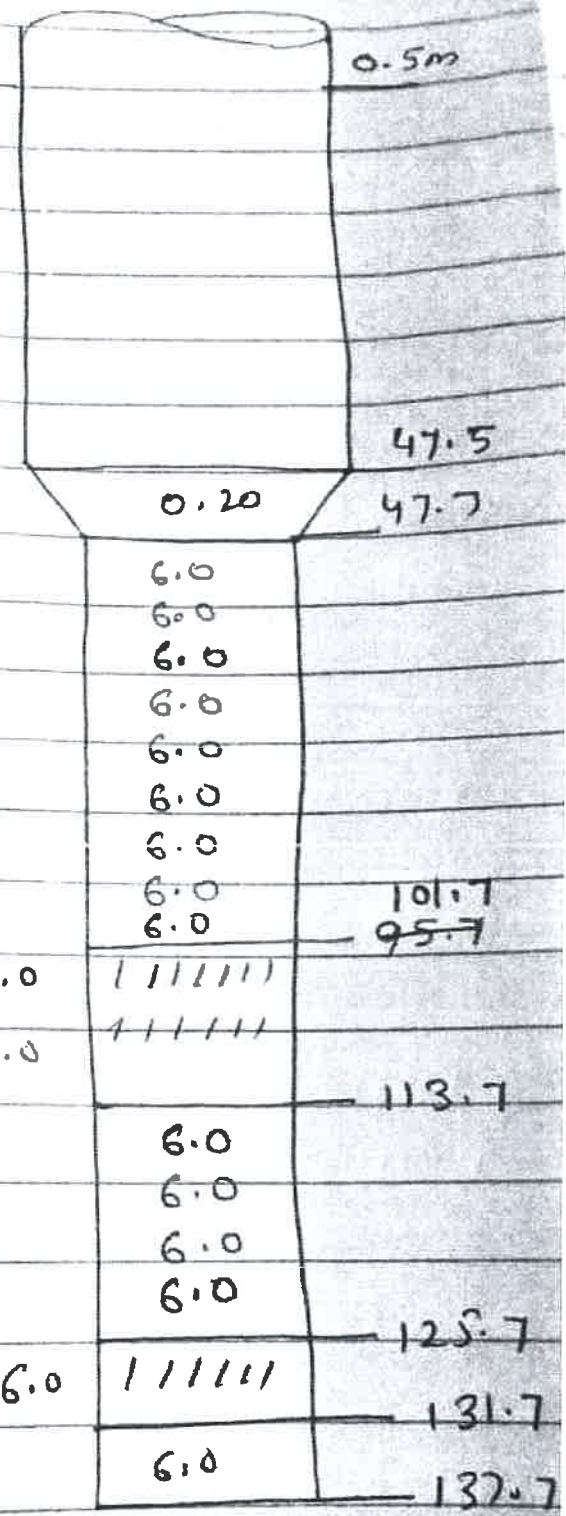 0.5m
47.5
0.20 47.7
6.0
6.0
6.0
6.0
6.0
6.0
6.0
6.0 101.7
6.0 95.7
.0
.0
113.7
6.0
6.0
6.0
6.0
125.7
6.0
131.7
6.0
137.7